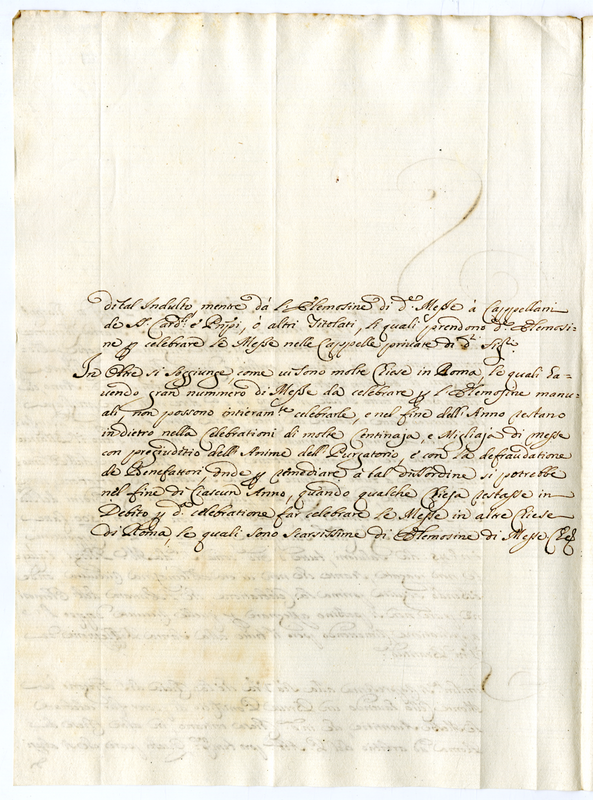 di tal Indulto, mentre dà le Elemosine di d.e Messe à Cappellani
de Sig.ri Card.li e Prñpi, ò altri Titolati, li quali prendono d.e Elemosi-
ne p celebrare le Messe nelle Cappelle private di d.i Sig.ri
In oltre si soggiunge, come vi sono molte Chiese in Roma, le quali ha-
vendo gran nummero di Messe da celebrare p l'Elemosine manu-
ali non possono intieram.te celebrarle, e nel fine dell'Anno restano
indietro nella celebrationi di molte Centinaja, e Migliaja di messe
con pregiuditio dell'Anime del Purgatorio, e con la defraudatione
de Benefattori, onde p remediare à tal disordine si potrebbe
nel fine di Ciascun Anno, quando qualche Chiesa restasse in
Debito p d.a celebratione far celebrare le Messe in altre Chiese
di Roma le quali sono scarsissime di Elemosine di Messe